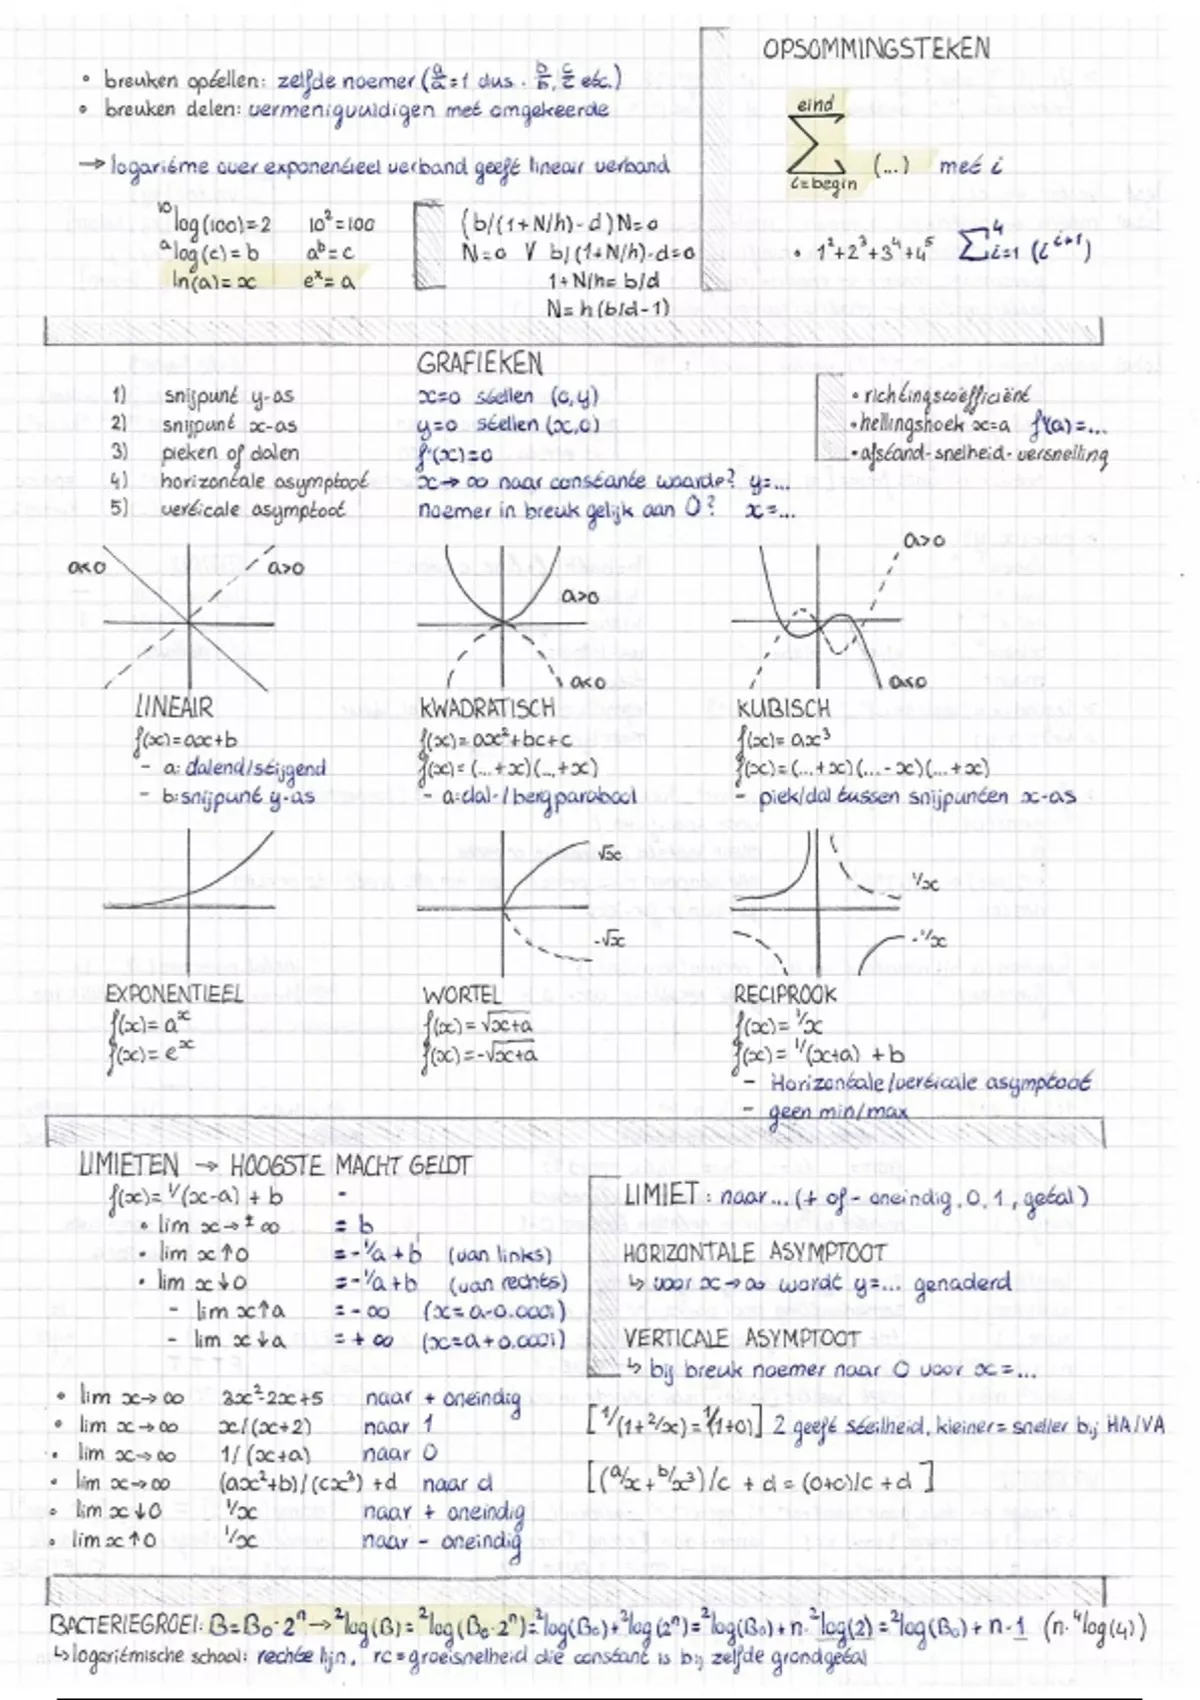 OPSOMMINGSTEKEN
• breuken optellen: zelfde noemer (a/a=1 dus · b/b, c/c etc.)
• breuken delen: vermenigvuldigen met omgekeerde
eind
Σ (...) met i
i=begin
→ logaritme over exponentieel verband geeft lineair verband
¹⁰log(100)=2 10²=100
ᵃlog(c)=b aᵇ=c
ln(a)=x eˣ=a
(b/(1+N/h)-d)N=0
N=0 V b/(1+N/h)-d=0
1+N/h=b/d
N=h(b/d-1)
• 1²+2³+3⁴+4⁵ Σ⁴i=1 (iⁱ⁺¹)
GRAFIEKEN
1) snijpunt y-as x=0 stellen (0,y)
2) snijpunt x-as y=0 stellen (x,0)
3) pieken of dalen f'(x)=0
4) horizontale asymptoot x→∞ naar constante waarde? y=...
5) verticale asymptoot noemer in breuk gelijk aan 0? x=...
• richtingscoëfficiënt
• hellingshoek x=a f'(a)=...
• afstand-snelheid-versnelling
a<0 a>0
a>0 a<0
a>0 a<0
LINEAIR
f(x)=ax+b
- a: dalend/stijgend
- b: snijpunt y-as
KWADRATISCH
f(x)=ax²+bc+c
f(x)=(...+x)(...+x)
- a: dal-/bergparabool
KUBISCH
f(x)=ax³
f(x)=(...+x)(...-x)(...+x)
- piek/dal tussen snijpunten x-as
√x
-√x
1/x
-1/x
EXPONENTIEEL
f(x)=aˣ
f(x)=eˣ
WORTEL
f(x)=√x+a
f(x)=-√x+a
RECIPROOK
f(x)=1/x
f(x)=1/(x+a) +b
- Horizontale/verticale asymptoot
- geen min/max
LIMIETEN → HOOGSTE MACHT GELDT
f(x)=1/(x-a)+b -
• lim x→±∞ = b
• lim x↑0 =-1/a+b (van links)
• lim x↓0 =-1/a+b (van rechts)
- lim x↑a =-∞ (x=a-0.0001)
- lim x↓a =+∞ (x=a+0.0001)
LIMIET: naar...(+ of - oneindig, 0, 1, getal)
HORIZONTALE ASYMPTOOT
↳ voor x→∞ wordt y=... genaderd
VERTICALE ASYMPTOOT
↳ bij breuk noemer naar 0 voor x=...
• lim x→∞ 3x²-2x+5 naar + oneindig
• lim x→∞ x/(x+2) naar 1
• lim x→∞ 1/(x+a) naar 0
• lim x→∞ (ax²+b)/(cx³)+d naar d
• lim x↓0 1/x naar + oneindig
• lim x↑0 1/x naar - oneindig
[1/(1+2/x)=1/(1+0)] 2 geeft steilheid, kleiner=sneller bij HA/VA
[(a/x+b/x³)/c+d=(0+0)/c+d]
BACTERIEGROEI: B=B₀·2ⁿ→²log(B)=²log(B₀·2ⁿ)=²log(B₀)+²log(2ⁿ)=²log(B₀)+n·²log(2)=²log(B₀)+n·1 (n·⁴log(4))
↳ logaritmische schaal: rechte lijn, rc=groeisnelheid die constant is bij zelfde grondgetal